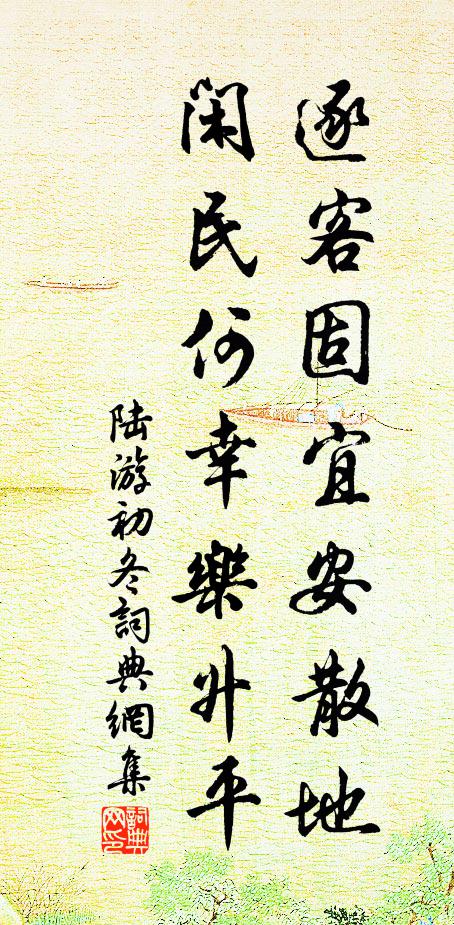 逐客固宜安散地
閑民何幸樂升平
陆游初冬詞典網集
詞典網印